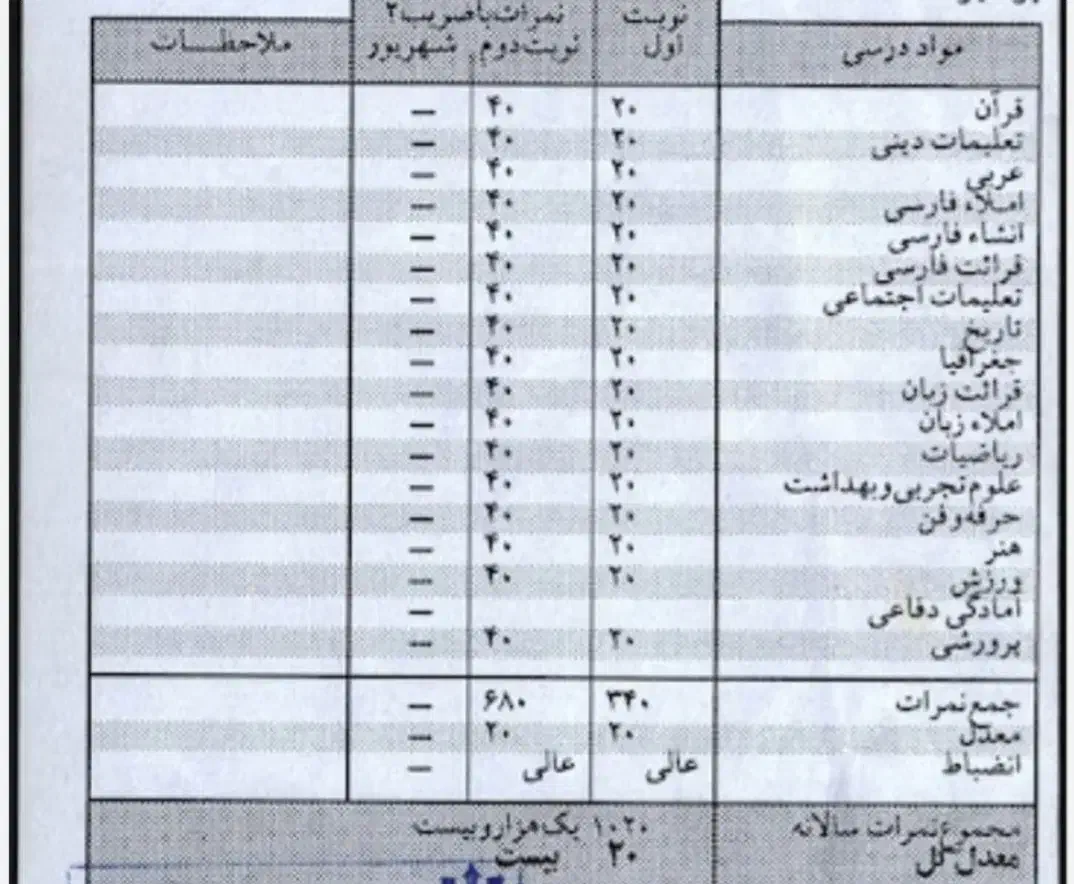 مواد درسی نوبت اول نمرات با ضریب ۲ نوبت دوم شهریور ملاحظات
قرآن ۲۰ ۴۰ —
تعلیمات دینی ۲۰ ۴۰ —
عربی ۲۰ ۴۰ —
املاء فارسی ۲۰ ۴۰ —
انشاء فارسی ۲۰ ۴۰ —
قرائت فارسی ۲۰ ۴۰ —
تعلیمات اجتماعی ۲۰ ۴۰ —
تاریخ ۲۰ ۴۰ —
جغرافیا ۲۰ ۴۰ —
قرائت زبان ۲۰ ۴۰ —
املاء زبان ۲۰ ۴۰ —
ریاضیات ۲۰ ۴۰ —
علوم تجربی و بهداشت ۲۰ ۴۰ —
حرفه و فن ۲۰ ۴۰ —
هنر ۲۰ ۴۰ —
ورزش ۲۰ ۴۰ —
آمادگی دفاعی —
پرورشی ۲۰ ۴۰ —
جمع نمرات ۳۴۰ ۶۸۰ —
معدل ۲۰ ۲۰ —
انضباط عالی عالی —
مجموع نمرات سالانه ۱۰۲۰ یک هزار و بیست
معدل کل ۲۰ بیست